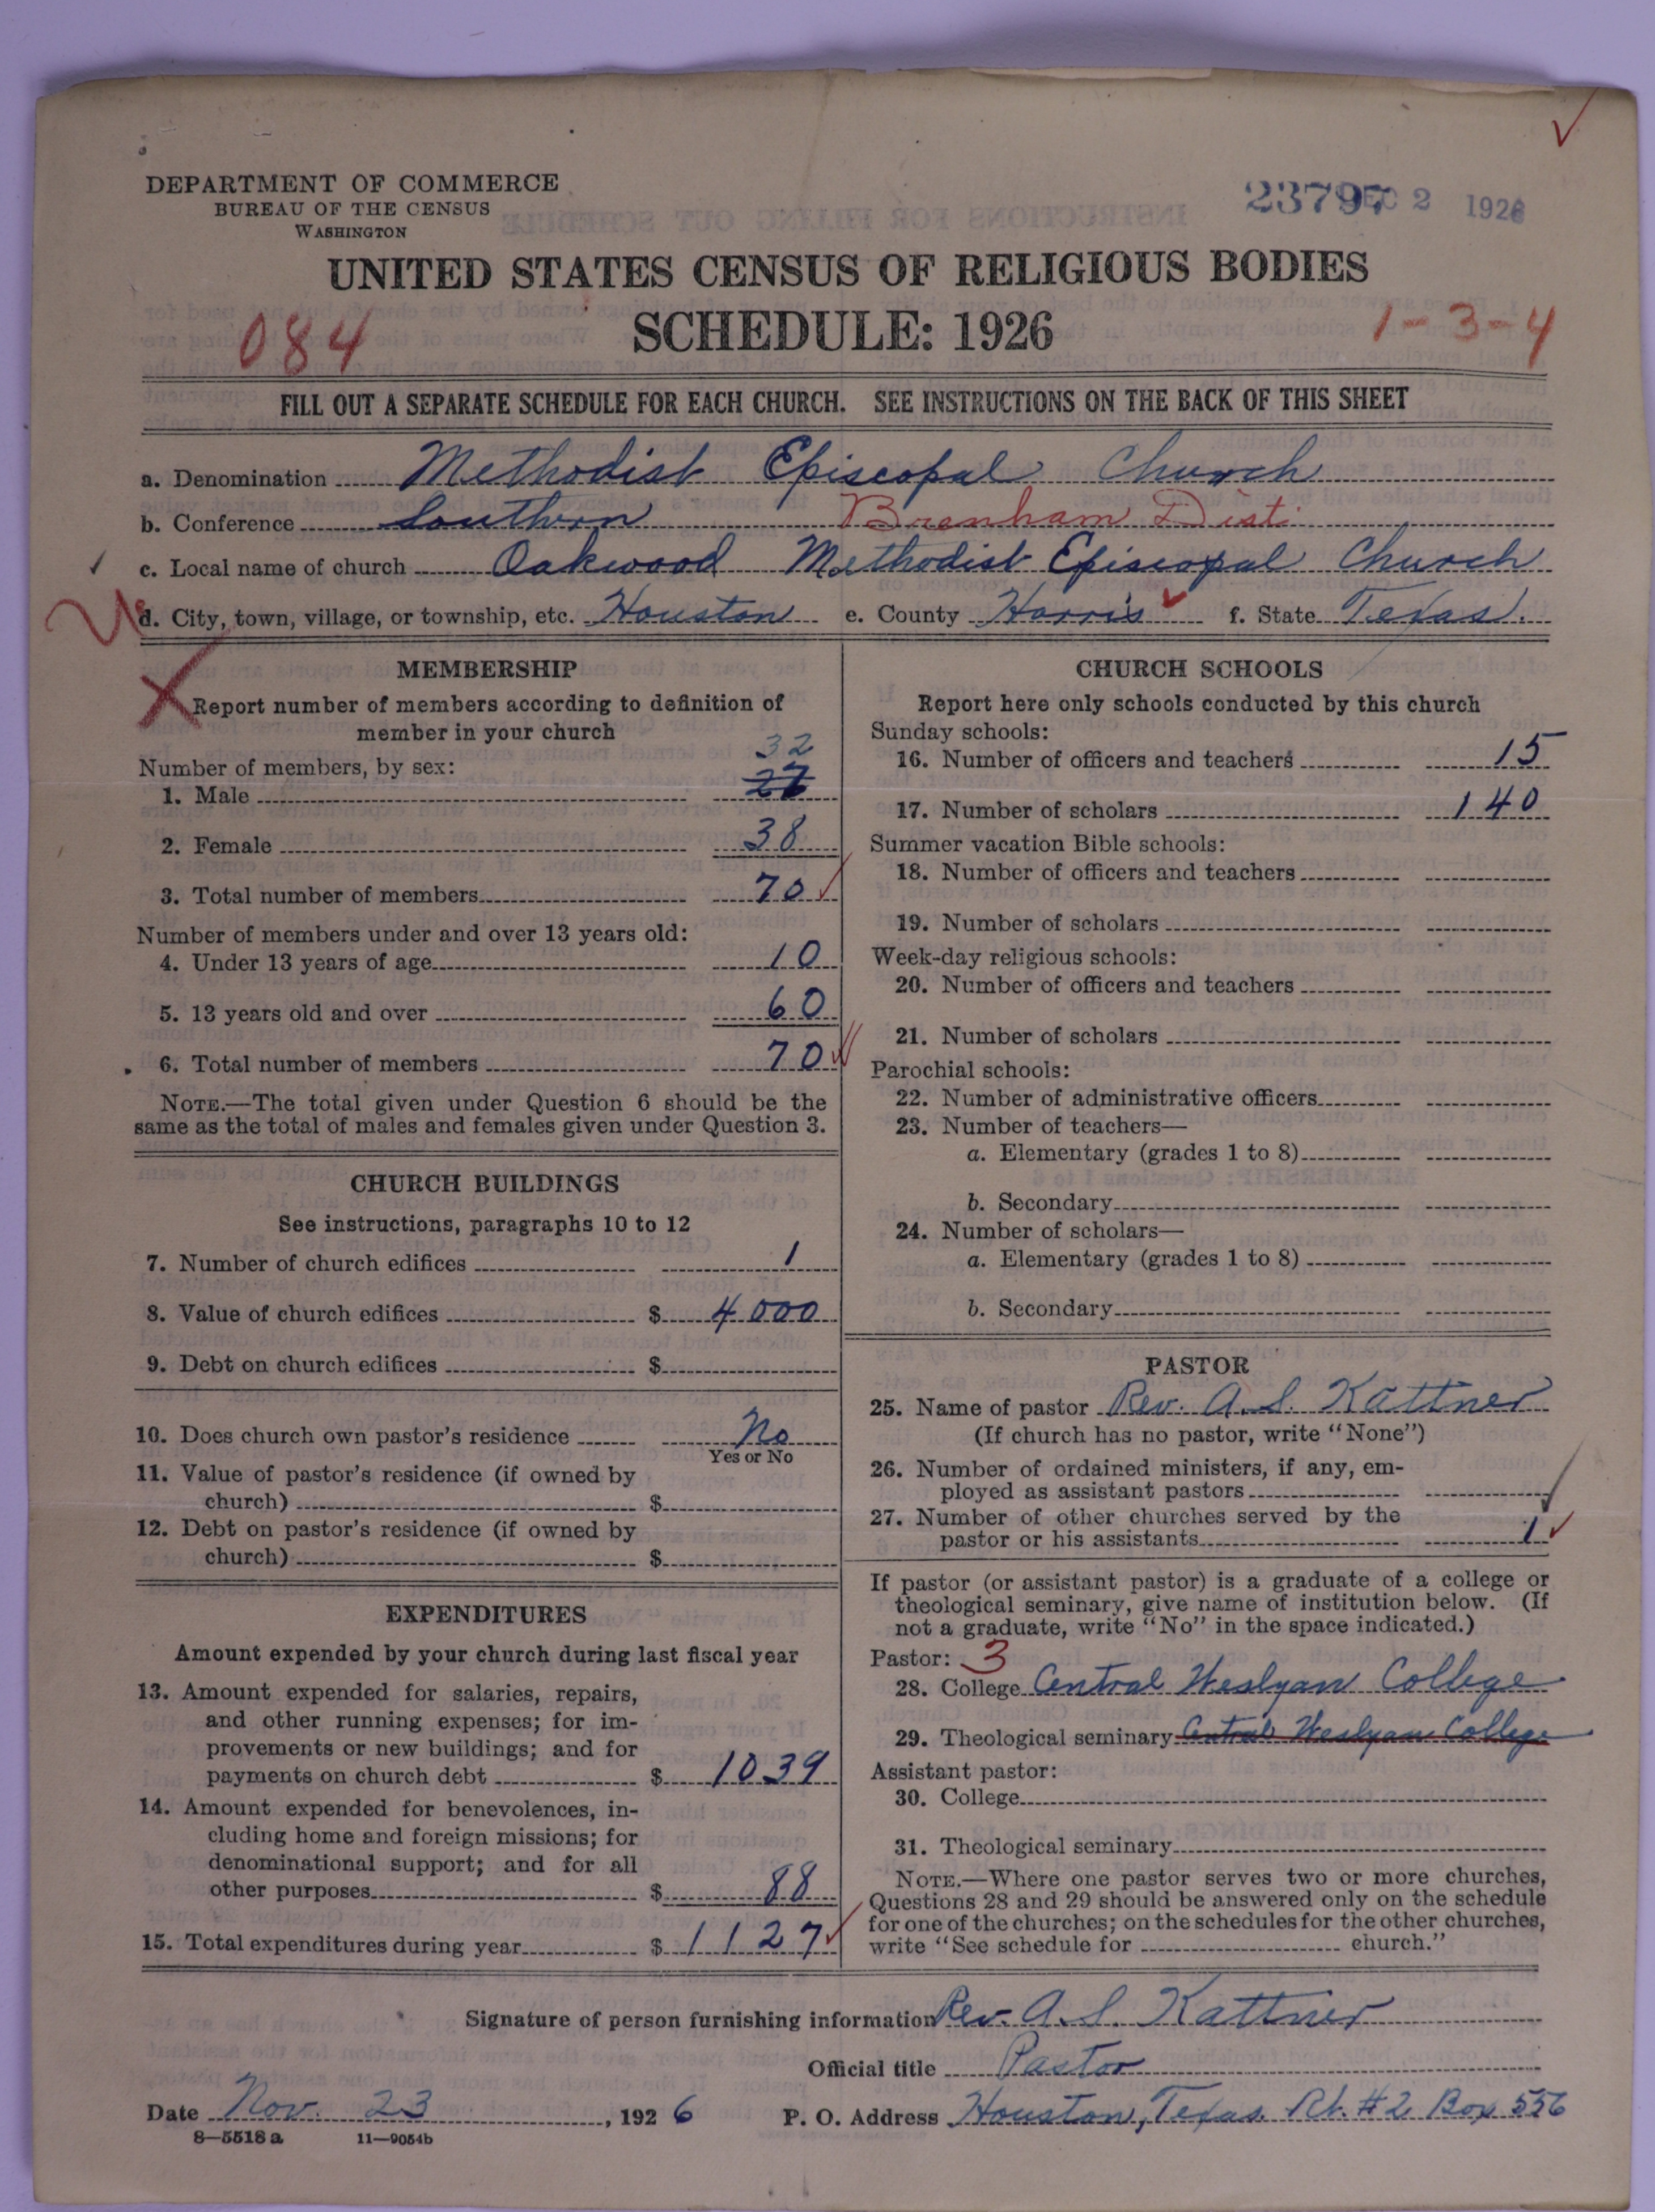 DEPARTMENT OF COMMERCE
BUREAU OF THE CENSUS
WASHINGTON
23797 DEC 2 1926
UNITED STATES CENSUS OF RELIGIOUS BODIES
SCHEDULE: 1926
084
1-3-4
FILL OUT A SEPARATE SCHEDULE FOR EACH CHURCH. SEE INSTRUCTIONS ON THE BACK OF THIS SHEET
a. Denomination Methodist Episcopal Church
b. Conference Southern Brenham Dist.
c. Local name of church Oakwood Methodist Episcopal Church
d. City, town, village, or township, etc. Houston e. County Harris f. State Texas.
MEMBERSHIP
Report number of members according to definition of
member in your church
Number of members, by sex:
32
1. Male 27
2. Female 38
3. Total number of members 70
Number of members under and over 13 years old:
4. Under 13 years of age 10
5. 13 years old and over 60
6. Total number of members 70
NOTE.—The total given under Question 6 should be the
same as the total of males and females given under Question 3.
CHURCH BUILDINGS
See instructions, paragraphs 10 to 12
7. Number of church edifices 1
8. Value of church edifices $ 4000
9. Debt on church edifices $
10. Does church own pastor's residence No
Yes or No
11. Value of pastor's residence (if owned by
church) $
12. Debt on pastor's residence (if owned by
church) $
EXPENDITURES
Amount expended by your church during last fiscal year
13. Amount expended for salaries, repairs,
and other running expenses; for im-
provements or new buildings; and for
payments on church debt $ 1039
14. Amount expended for benevolences, in-
cluding home and foreign missions; for
denominational support; and for all
other purposes $ 88
15. Total expenditures during year $ 1127
CHURCH SCHOOLS
Report here only schools conducted by this church
Sunday schools:
16. Number of officers and teachers 15
17. Number of scholars 140
Summer vacation Bible schools:
18. Number of officers and teachers
19. Number of scholars
Week-day religious schools:
20. Number of officers and teachers
21. Number of scholars
Parochial schools:
22. Number of administrative officers
23. Number of teachers—
a. Elementary (grades 1 to 8)
b. Secondary
24. Number of scholars—
a. Elementary (grades 1 to 8)
b. Secondary
PASTOR
25. Name of pastor Rev. A. S. Kattner
(If church has no pastor, write "None")
26. Number of ordained ministers, if any, em-
ployed as assistant pastors
27. Number of other churches served by the
pastor or his assistants 1
If pastor (or assistant pastor) is a graduate of a college or
theological seminary, give name of institution below. (If
not a graduate, write "No" in the space indicated.)
Pastor: 3
28. College Central Weslyan College
29. Theological seminary Central Weslyan College
Assistant pastor:
30. College
31. Theological seminary
NOTE.—Where one pastor serves two or more churches,
Questions 28 and 29 should be answered only on the schedule
for one of the churches; on the schedules for the other churches,
write "See schedule for church."
Signature of person furnishing information Rev. A. S. Kattner
Official title Pastor
Date Nov. 23, 1926 P. O. Address Houston, Texas. Rt. #2 Box 556
8—5518 a 11—9054b